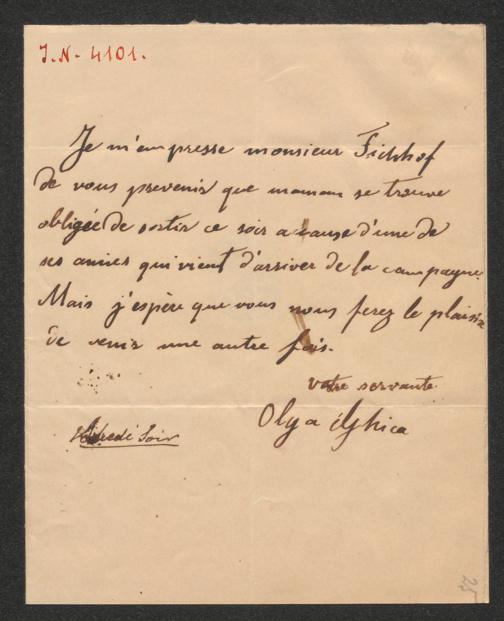 J.N. 4101.
Je m'empresse monsieur Fischhof
de vous prevenir que maman se trouve
obligée de sortir ce soir a cause d'une de
ses amies qui vient d'arriver de la campagne.
Mais j'espère que vous nous ferez le plaisir
de venir une autre fois.
votre servante
Olga Ghica
Soir
25